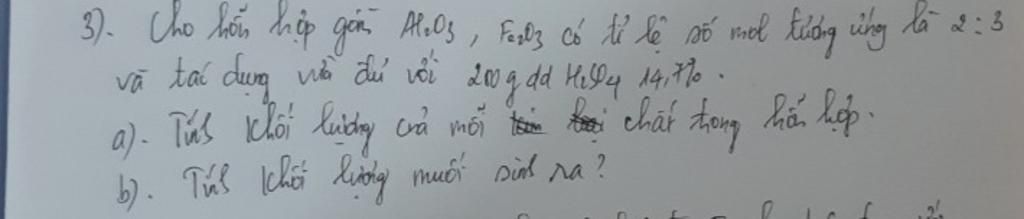 3). Cho hỗn hợp gồm Al₂O₃, Fe₂O₃ có tỉ lệ số mol tương ứng là 2:3
và tác dụng vừa đủ với 200g dd H₂SO₄ 14,7%.
a). Tính khối lượng của mỗi chất trong hỗn hợp.
b). Tính khối lượng muối sinh ra?